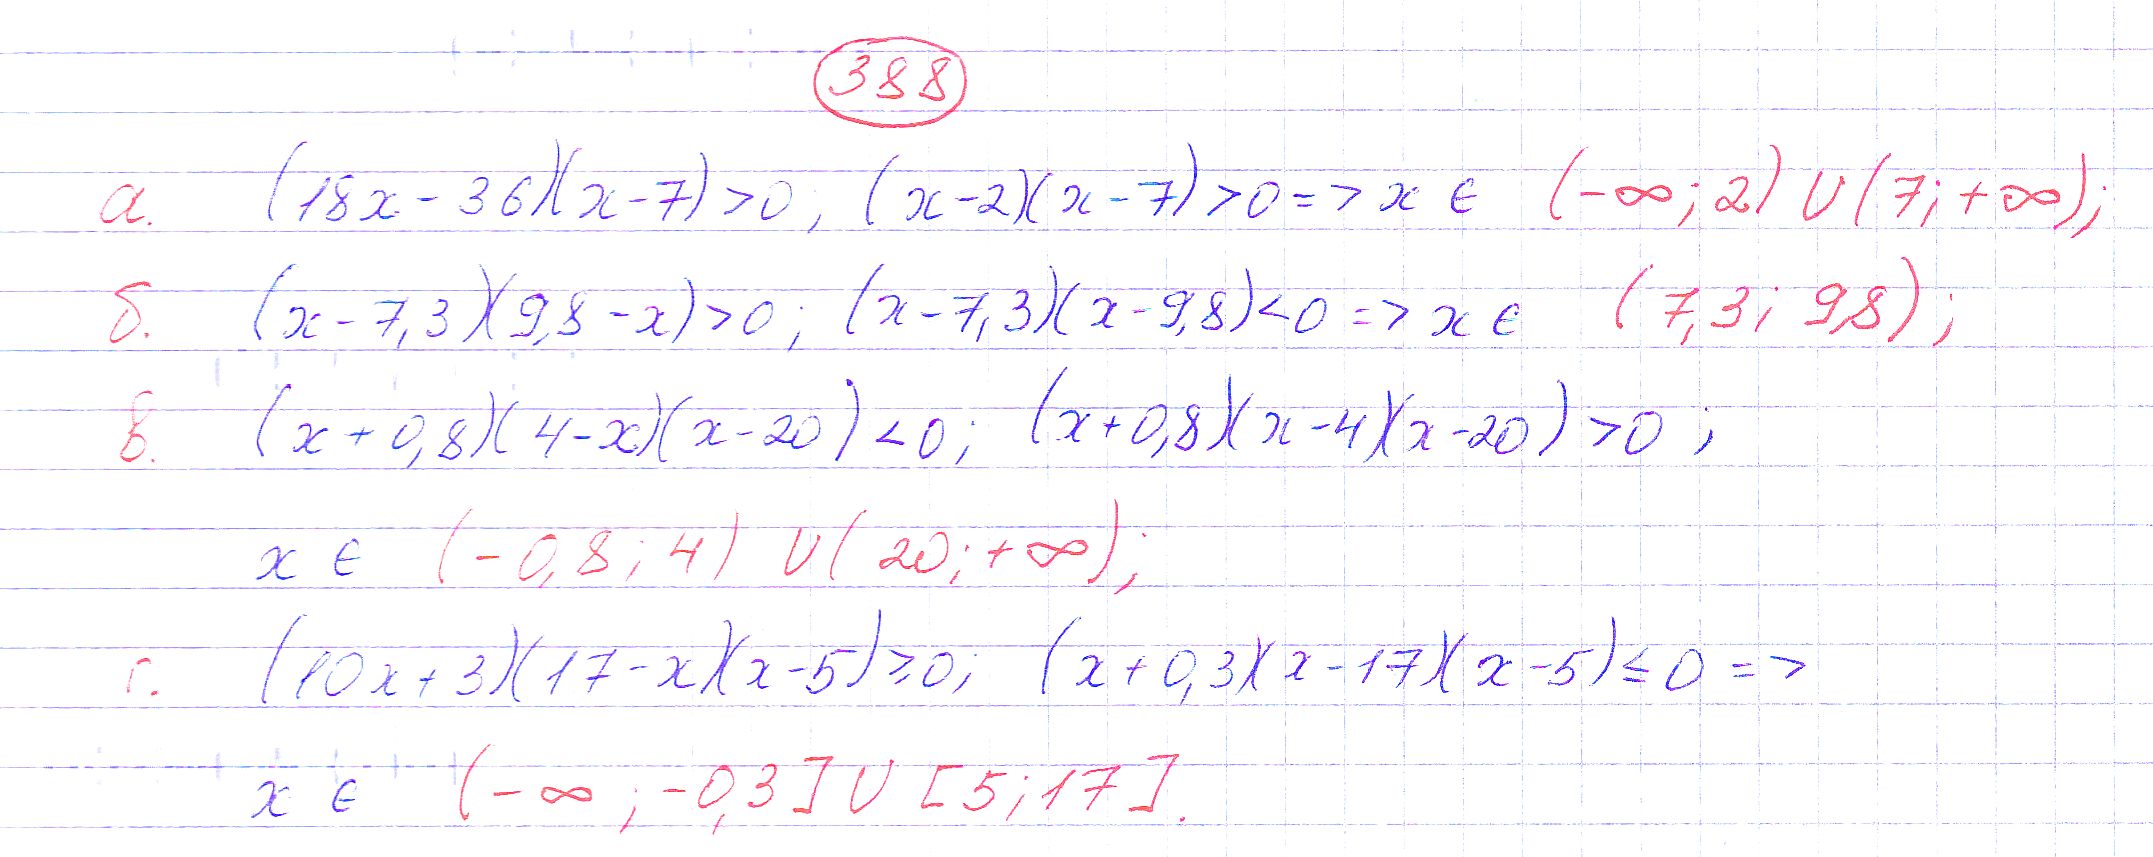 388
а. (18x-36)(x-7)>0; (x-2)(x-7)>0 => x ∈ (-∞; 2) ∪ (7; +∞);
б. (x-7,3)(9,8-x)>0; (x-7,3)(x-9,8)<0 => x ∈ (7,3; 9,8);
в. (x+0,8)(4-x)(x-20)<0; (x+0,8)(x-4)(x-20)>0;
x ∈ (-0,8; 4) ∪ (20; +∞);
г. (10x+3)(17-x)(x-5)≥0; (x+0,3)(x-17)(x-5)≤0 =>
x ∈ (-∞; -0,3] ∪ [5; 17].